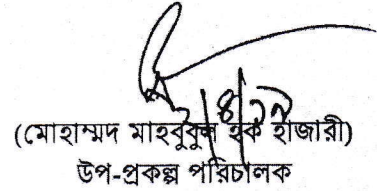 (মোহাম্মদ মাহবুবুল হক হাজারী)
উপ-প্রকল্প পরিচালক